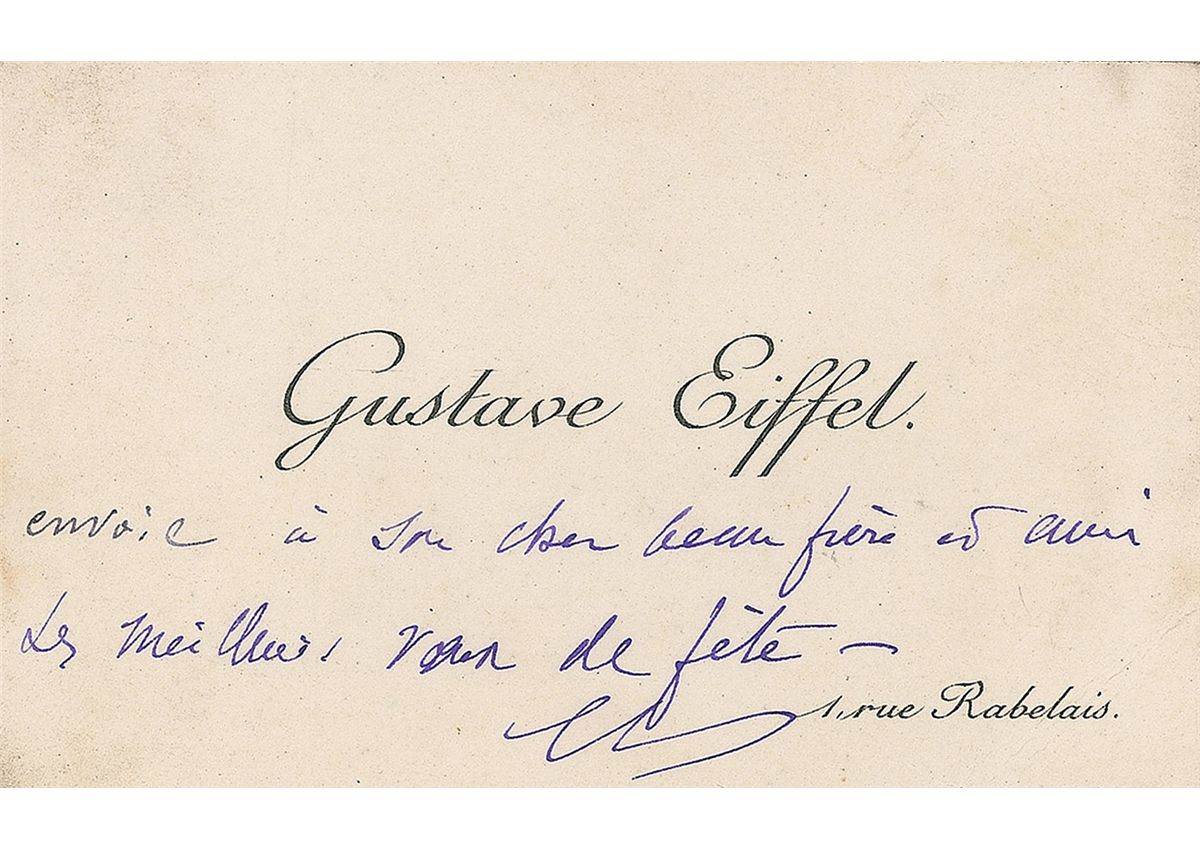 Gustave Eiffel.
envoie à son cher beau frère et ami
les meilleurs vœux de fête —
1, rue Rabelais.